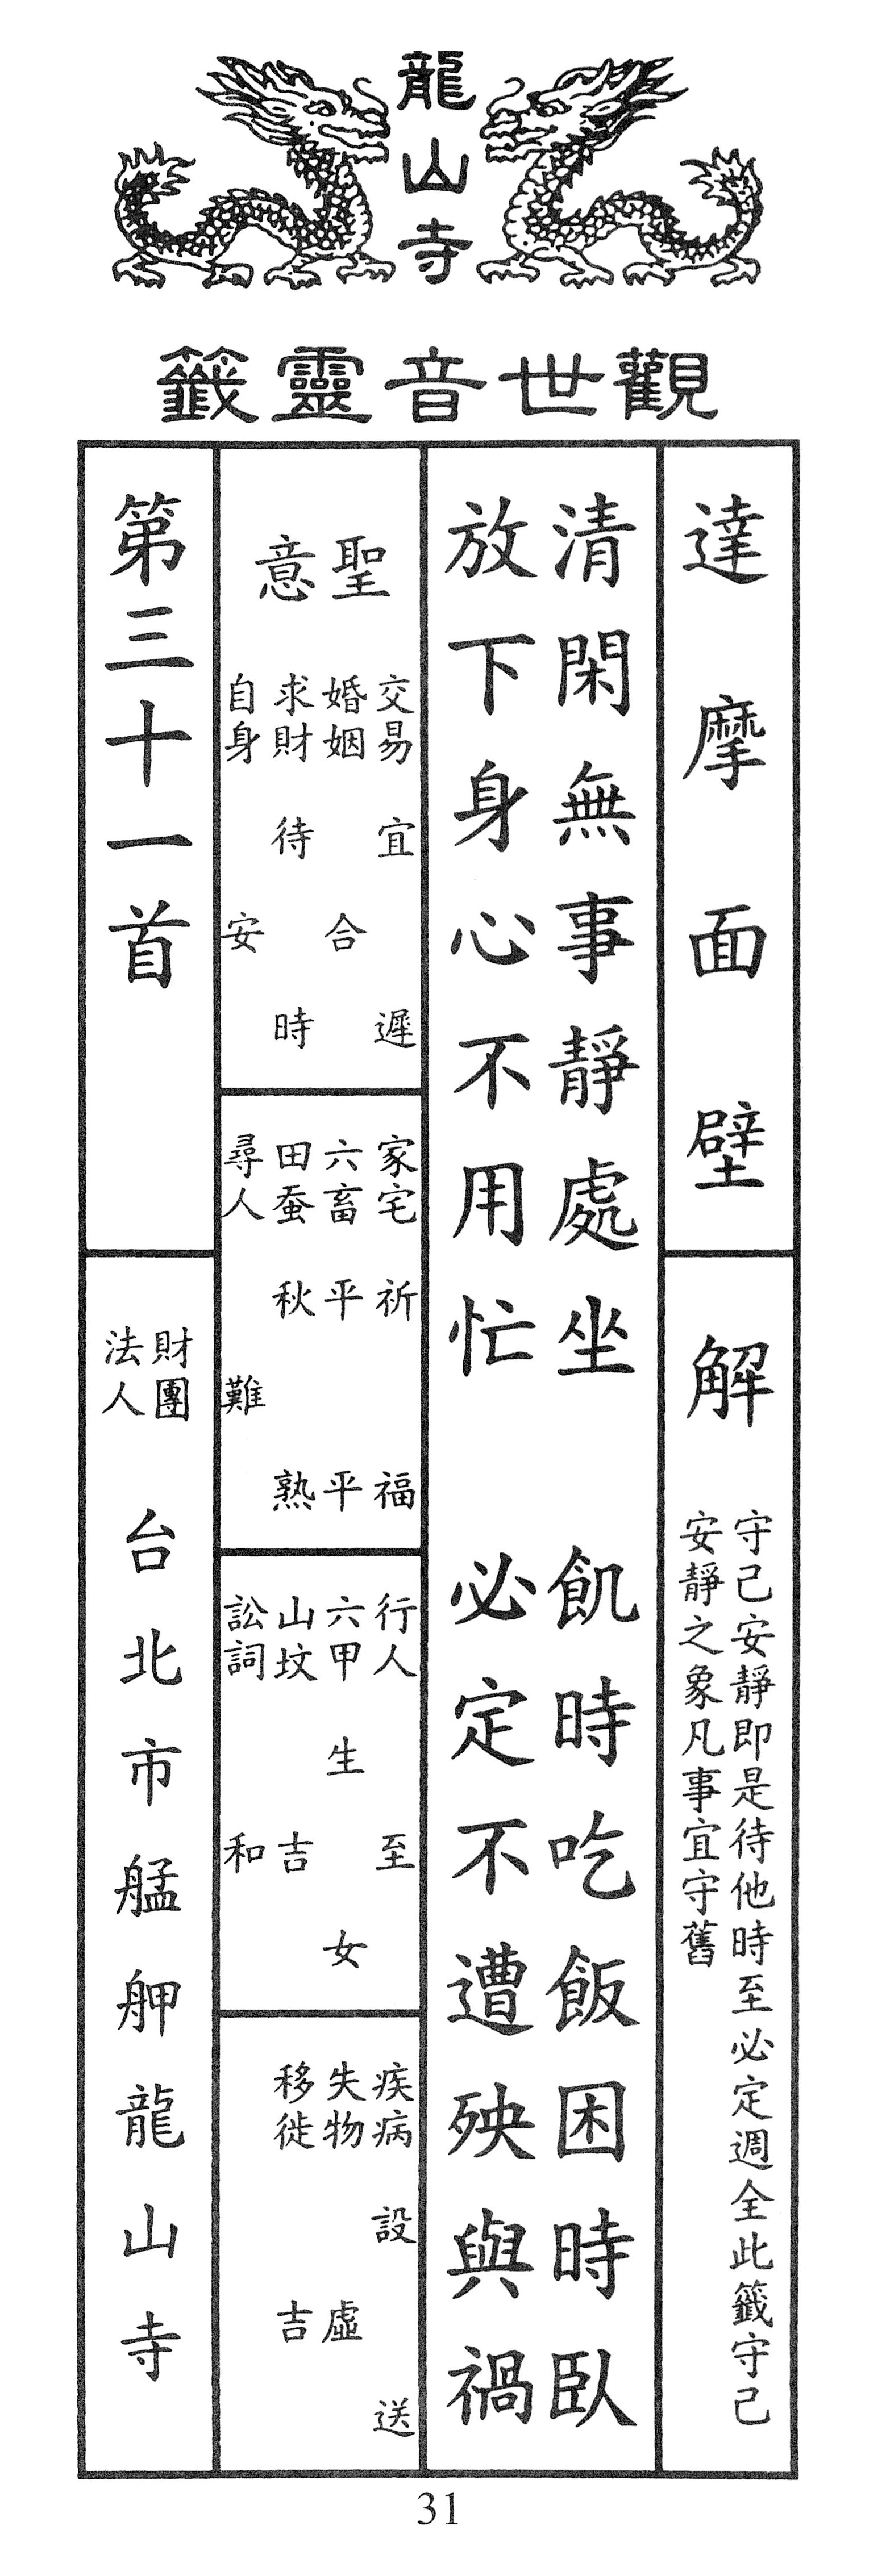 龍山寺
觀世音靈籤
達摩面壁
解
守己安靜即是待他時至必定週全此籤守己
安靜之象凡事宜守舊
清閑無事靜處坐　飢時吃飯困時臥
放下身心不用忙　必定不遭殃與禍
聖意
交易　宜遲
婚姻　合
求財　待時
自身　安
家宅　祈福
六畜　平平
田蚕　秋熟
尋人　難
行人　至
六甲　生女
山坟　吉
訟詞　和
疾病　設送
失物　虛
移徙　吉
第三十一首
財團
法人
台北市艋舺龍山寺
31